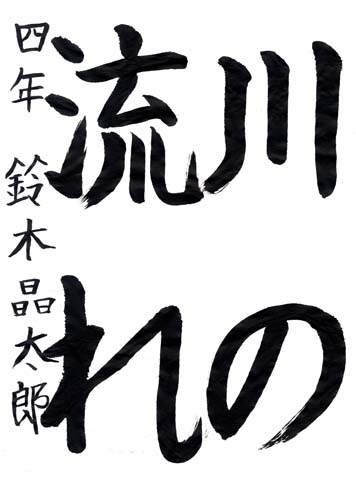 川の
流れ
四年 鈴木晶太郎